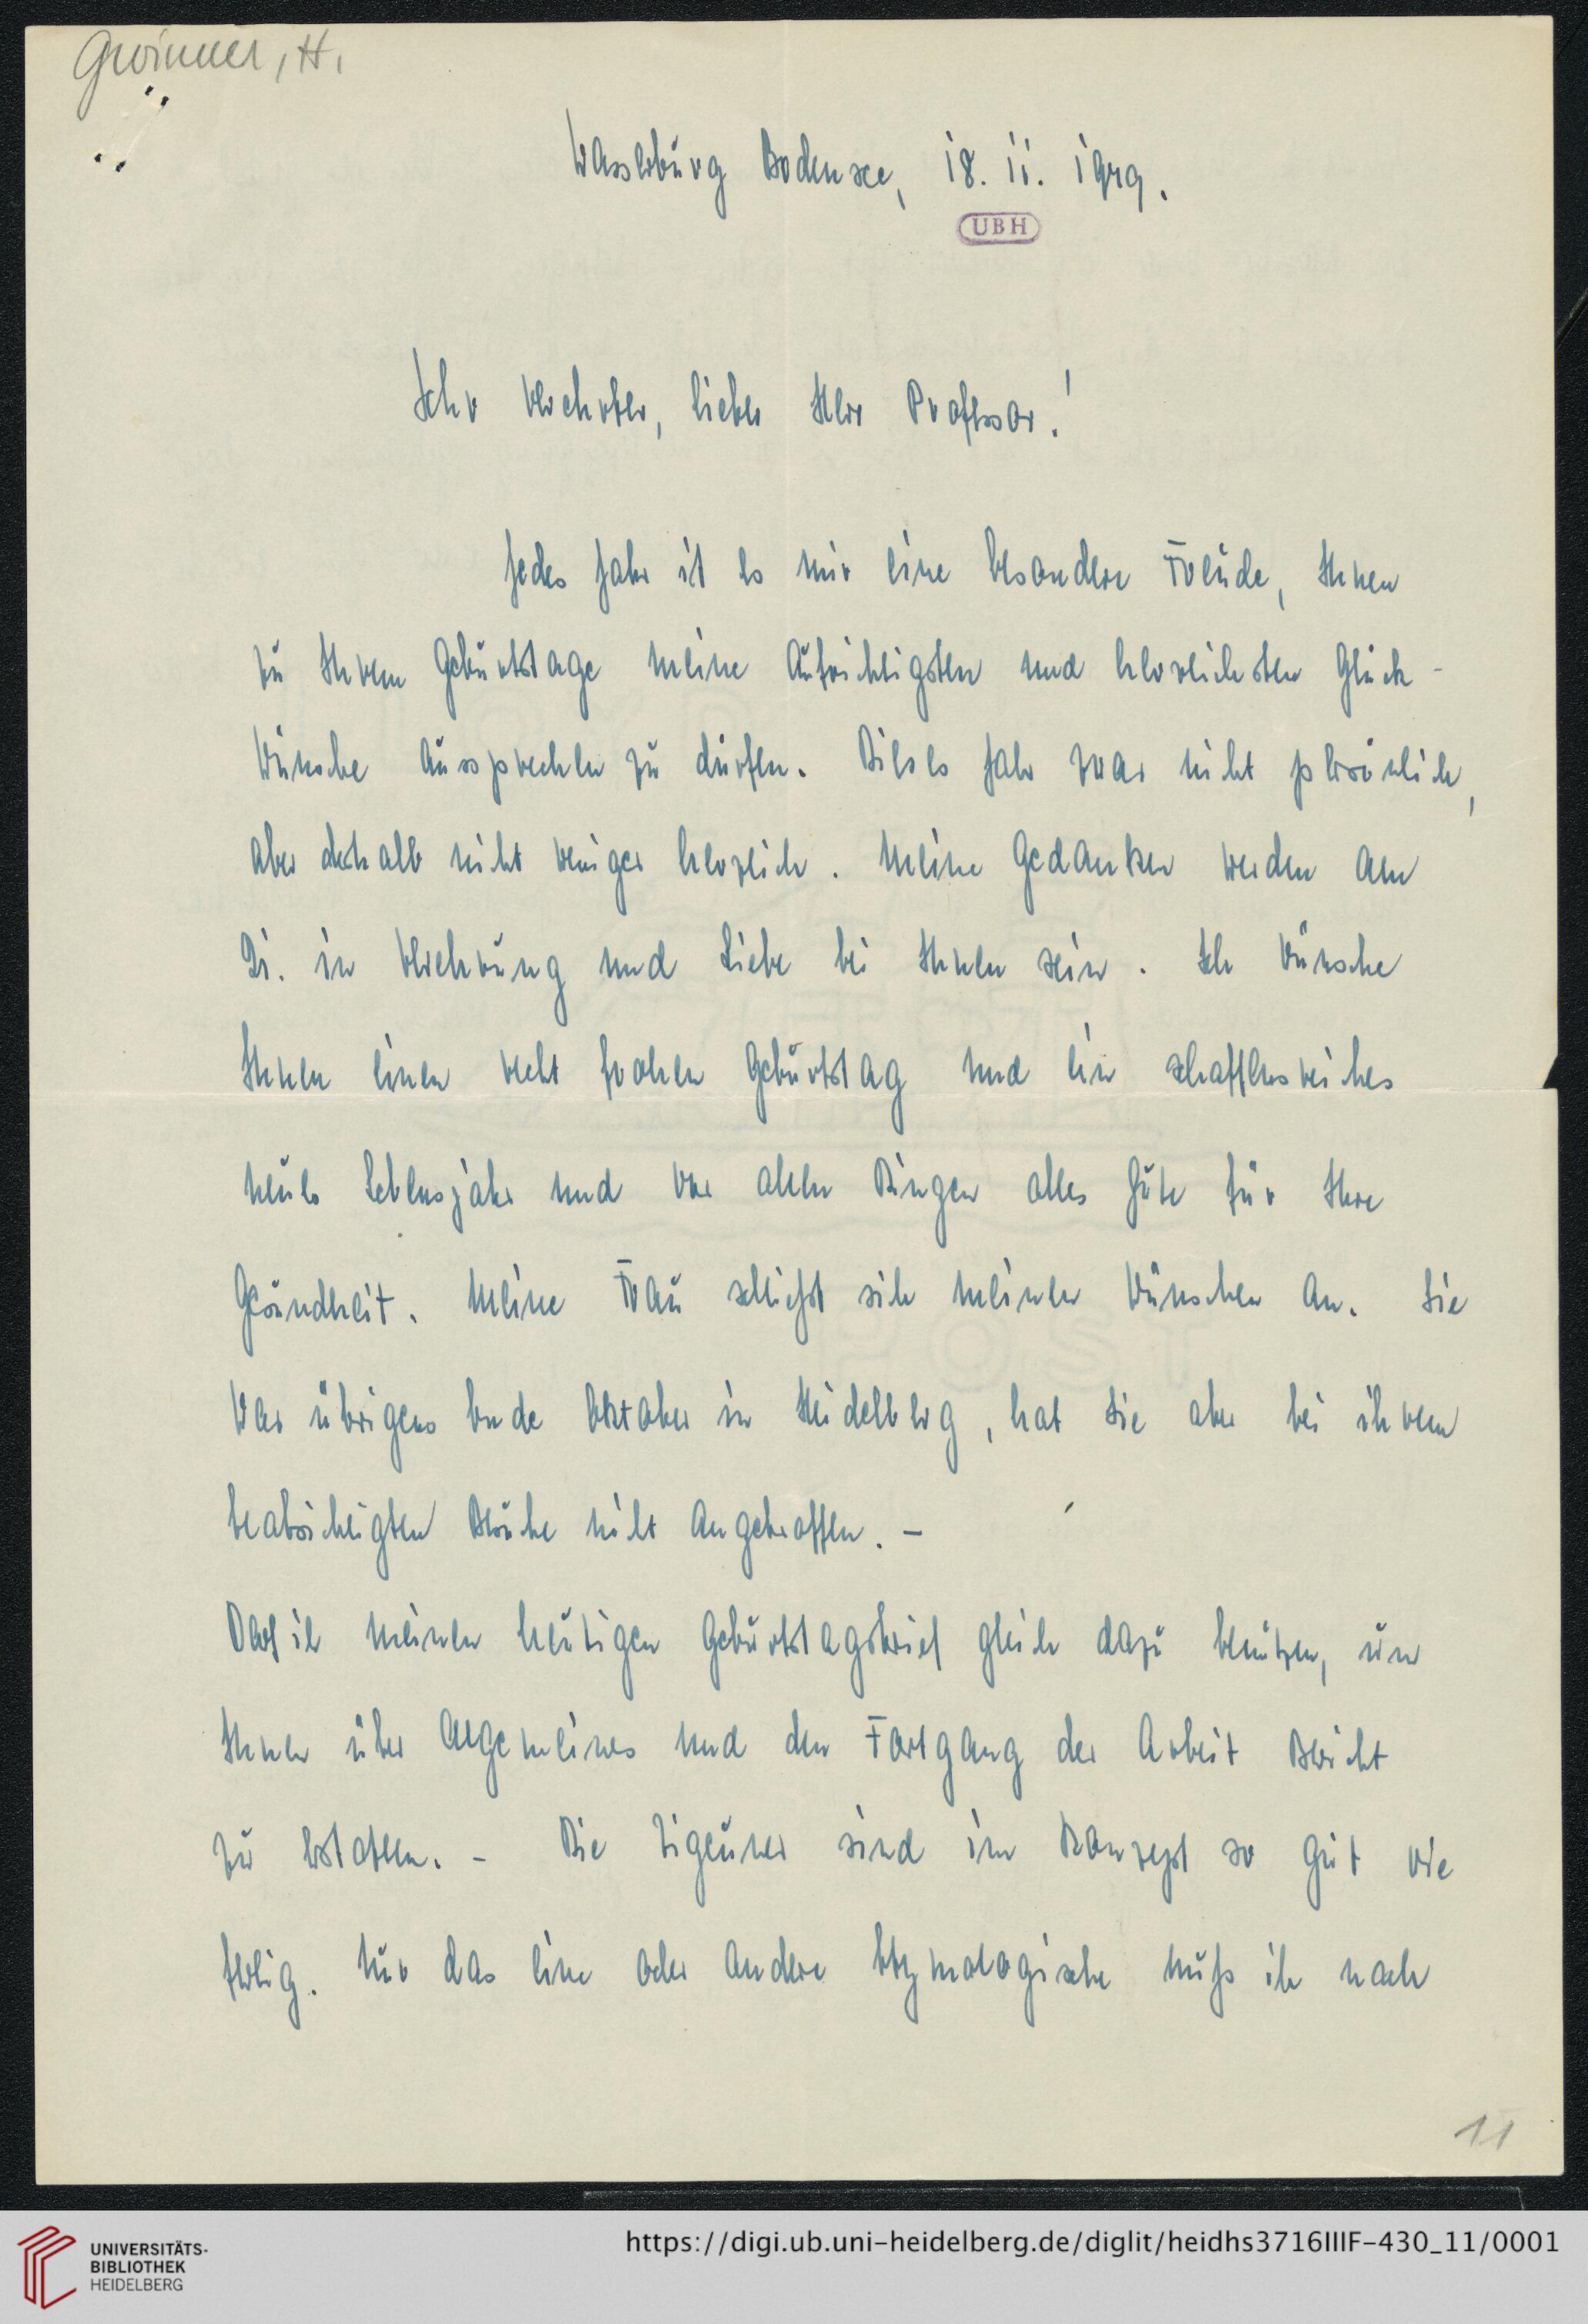 Gwinner, H.
Wasserburg Bodensee, 18. 11. 1949.
UBH
Sehr verehrter, lieber Herr Professor!
Jedes Jahr ist es mir eine besondere Freude, Ihnen
zu Ihrem Geburtstage meine aufrichtigsten und herzlichsten Glück-
wünsche aussprechen zu dürfen. Dieses Jahr zwar nicht persönlich,
aber deshalb nicht weniger herzlich. Meine Gedanken werden am
21. in Verehrung und Liebe bei Ihnen sein. Ich wünsche
Ihnen einen recht frohen Geburtstag und ein schaffensreiches
neues Lebensjahr und vor allen Dingen alles Gute für Ihre
Gesundheit. Meine Frau schließt sich meinen Wünschen an. Sie
war übrigens Ende Oktober in Heidelberg, hat Sie aber bei ihrem
beabsichtigten Besuche nicht angetroffen. –
Darf ich meinen heutigen Geburtstagsbrief gleich dazu benützen, um
Ihnen über Allgemeines und den Fortgang der Arbeit Bericht
zu erstatten. – Die Zigeuner sind im Konzept so gut wie
fertig. Nur das eine oder andere Etymologische muß ich noch
11
UNIVERSITÄTS-
BIBLIOTHEK
HEIDELBERG
https://digi.ub.uni-heidelberg.de/diglit/heidhs3716IIIF-430_11/0001